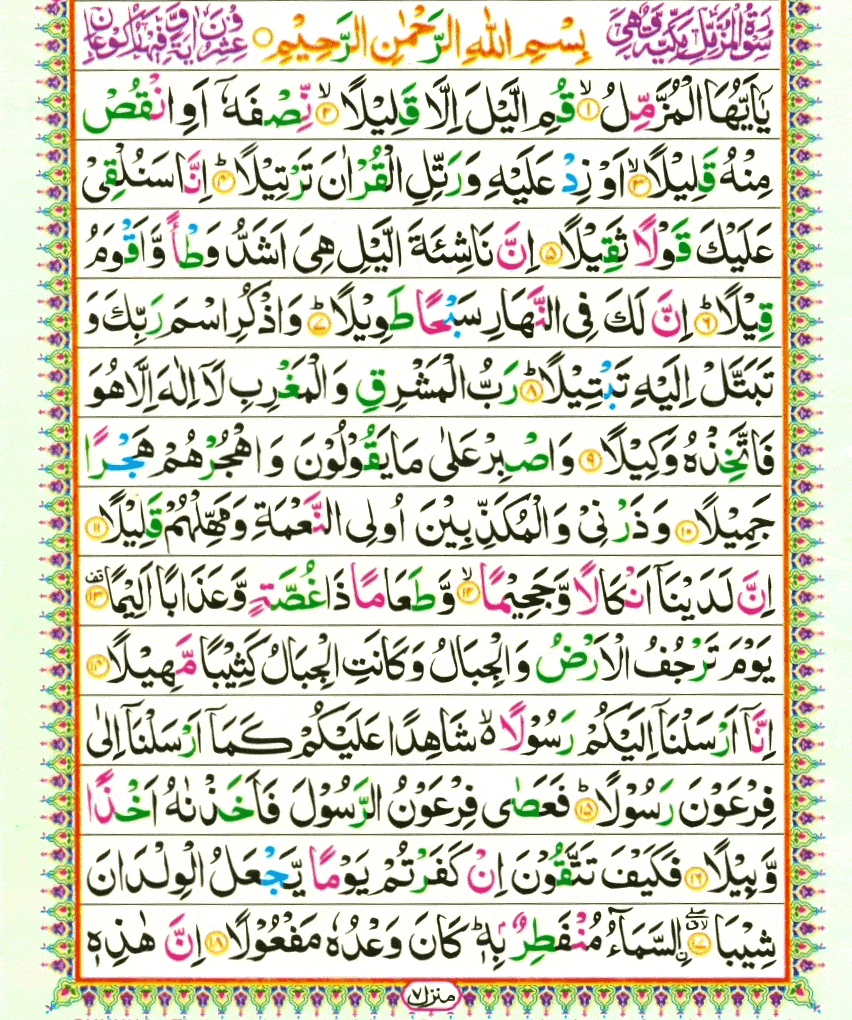 سُوْرَةُ الْمُزَّمِّلِ مَكِّيَّةٌ وَّهِيَ بِسْمِ اللهِ الرَّحْمٰنِ الرَّحِيْمِ ۝ عِشْرُوْنَ اٰيَةً وَّفِيْهَا رُكُوْعَانِ
يٰۤاَيُّهَا الْمُزَّمِّلُ ۙ‏﴿۱﴾ قُمِ الَّيْلَ اِلَّا قَلِيْلًا ۙ‏﴿۲﴾ نِّصْفَهٗۤ اَوِ انْقُصْ
مِنْهُ قَلِيْلًا ۙ‏﴿۳﴾ اَوْ زِدْ عَلَيْهِ وَرَتِّلِ الْقُرْاٰنَ تَرْتِيْلًا ؕ‏﴿۴﴾ اِنَّا سَنُلْقِىْ
عَلَيْكَ قَوْلًا ثَقِيْلًا ‏﴿۵﴾ اِنَّ نَاشِئَةَ الَّيْلِ هِىَ اَشَدُّ وَطْاً وَّاَقْوَمُ
قِيْلًا ؕ‏﴿۶﴾ اِنَّ لَكَ فِى النَّهَارِ سَبْحًا طَوِيْلًا ؕ‏﴿۷﴾ وَاذْكُرِ اسْمَ رَبِّكَ وَ
تَبَتَّلْ اِلَيْهِ تَبْتِيْلًا ؕ‏﴿۸﴾ رَبُّ الْمَشْرِقِ وَالْمَغْرِبِ لَاۤ اِلٰهَ اِلَّا هُوَ
فَاتَّخِذْهُ وَكِيْلًا ‏﴿۹﴾ وَاصْبِرْ عَلٰى مَا يَقُوْلُوْنَ وَاهْجُرْهُمْ هَجْرًا
جَمِيْلًا ‏﴿۱۰﴾ وَذَرْنِىْ وَالْمُكَذِّبِيْنَ اُولِى النَّعْمَةِ وَمَهِّلْهُمْ قَلِيْلًا ‏﴿۱۱﴾
اِنَّ لَدَيْنَاۤ اَنْكَالًا وَّجَحِيْمًا ۙ‏﴿۱۲﴾ وَّطَعَامًا ذَا غُصَّةٍ وَّعَذَابًا اَلِيْمًا ‏﴿۱۳﴾ قف
يَوْمَ تَرْجُفُ الْاَرْضُ وَالْجِبَالُ وَكَانَتِ الْجِبَالُ كَثِيْبًا مَّهِيْلًا ‏﴿۱۴﴾
اِنَّاۤ اَرْسَلْنَاۤ اِلَيْكُمْ رَسُوْلًا ۙ۬ شَاهِدًا عَلَيْكُمْ كَمَاۤ اَرْسَلْنَاۤ اِلٰى
فِرْعَوْنَ رَسُوْلًا ؕ‏﴿۱۵﴾ فَعَصٰى فِرْعَوْنُ الرَّسُوْلَ فَاَخَذْنٰهُ اَخْذًا
وَّبِيْلًا ‏﴿۱۶﴾ فَكَيْفَ تَتَّقُوْنَ اِنْ كَفَرْتُمْ يَوْمًا يَّجْعَلُ الْوِلْدَانَ
شِيْبَا ‏﴿۱۷﴾ اۨلسَّمَآءُ مُنْفَطِرٌۢ بِهٖ ؕ كَانَ وَعْدُهٗ مَفْعُوْلًا ‏﴿۱۸﴾ اِنَّ هٰذِهٖ
منزل ۷